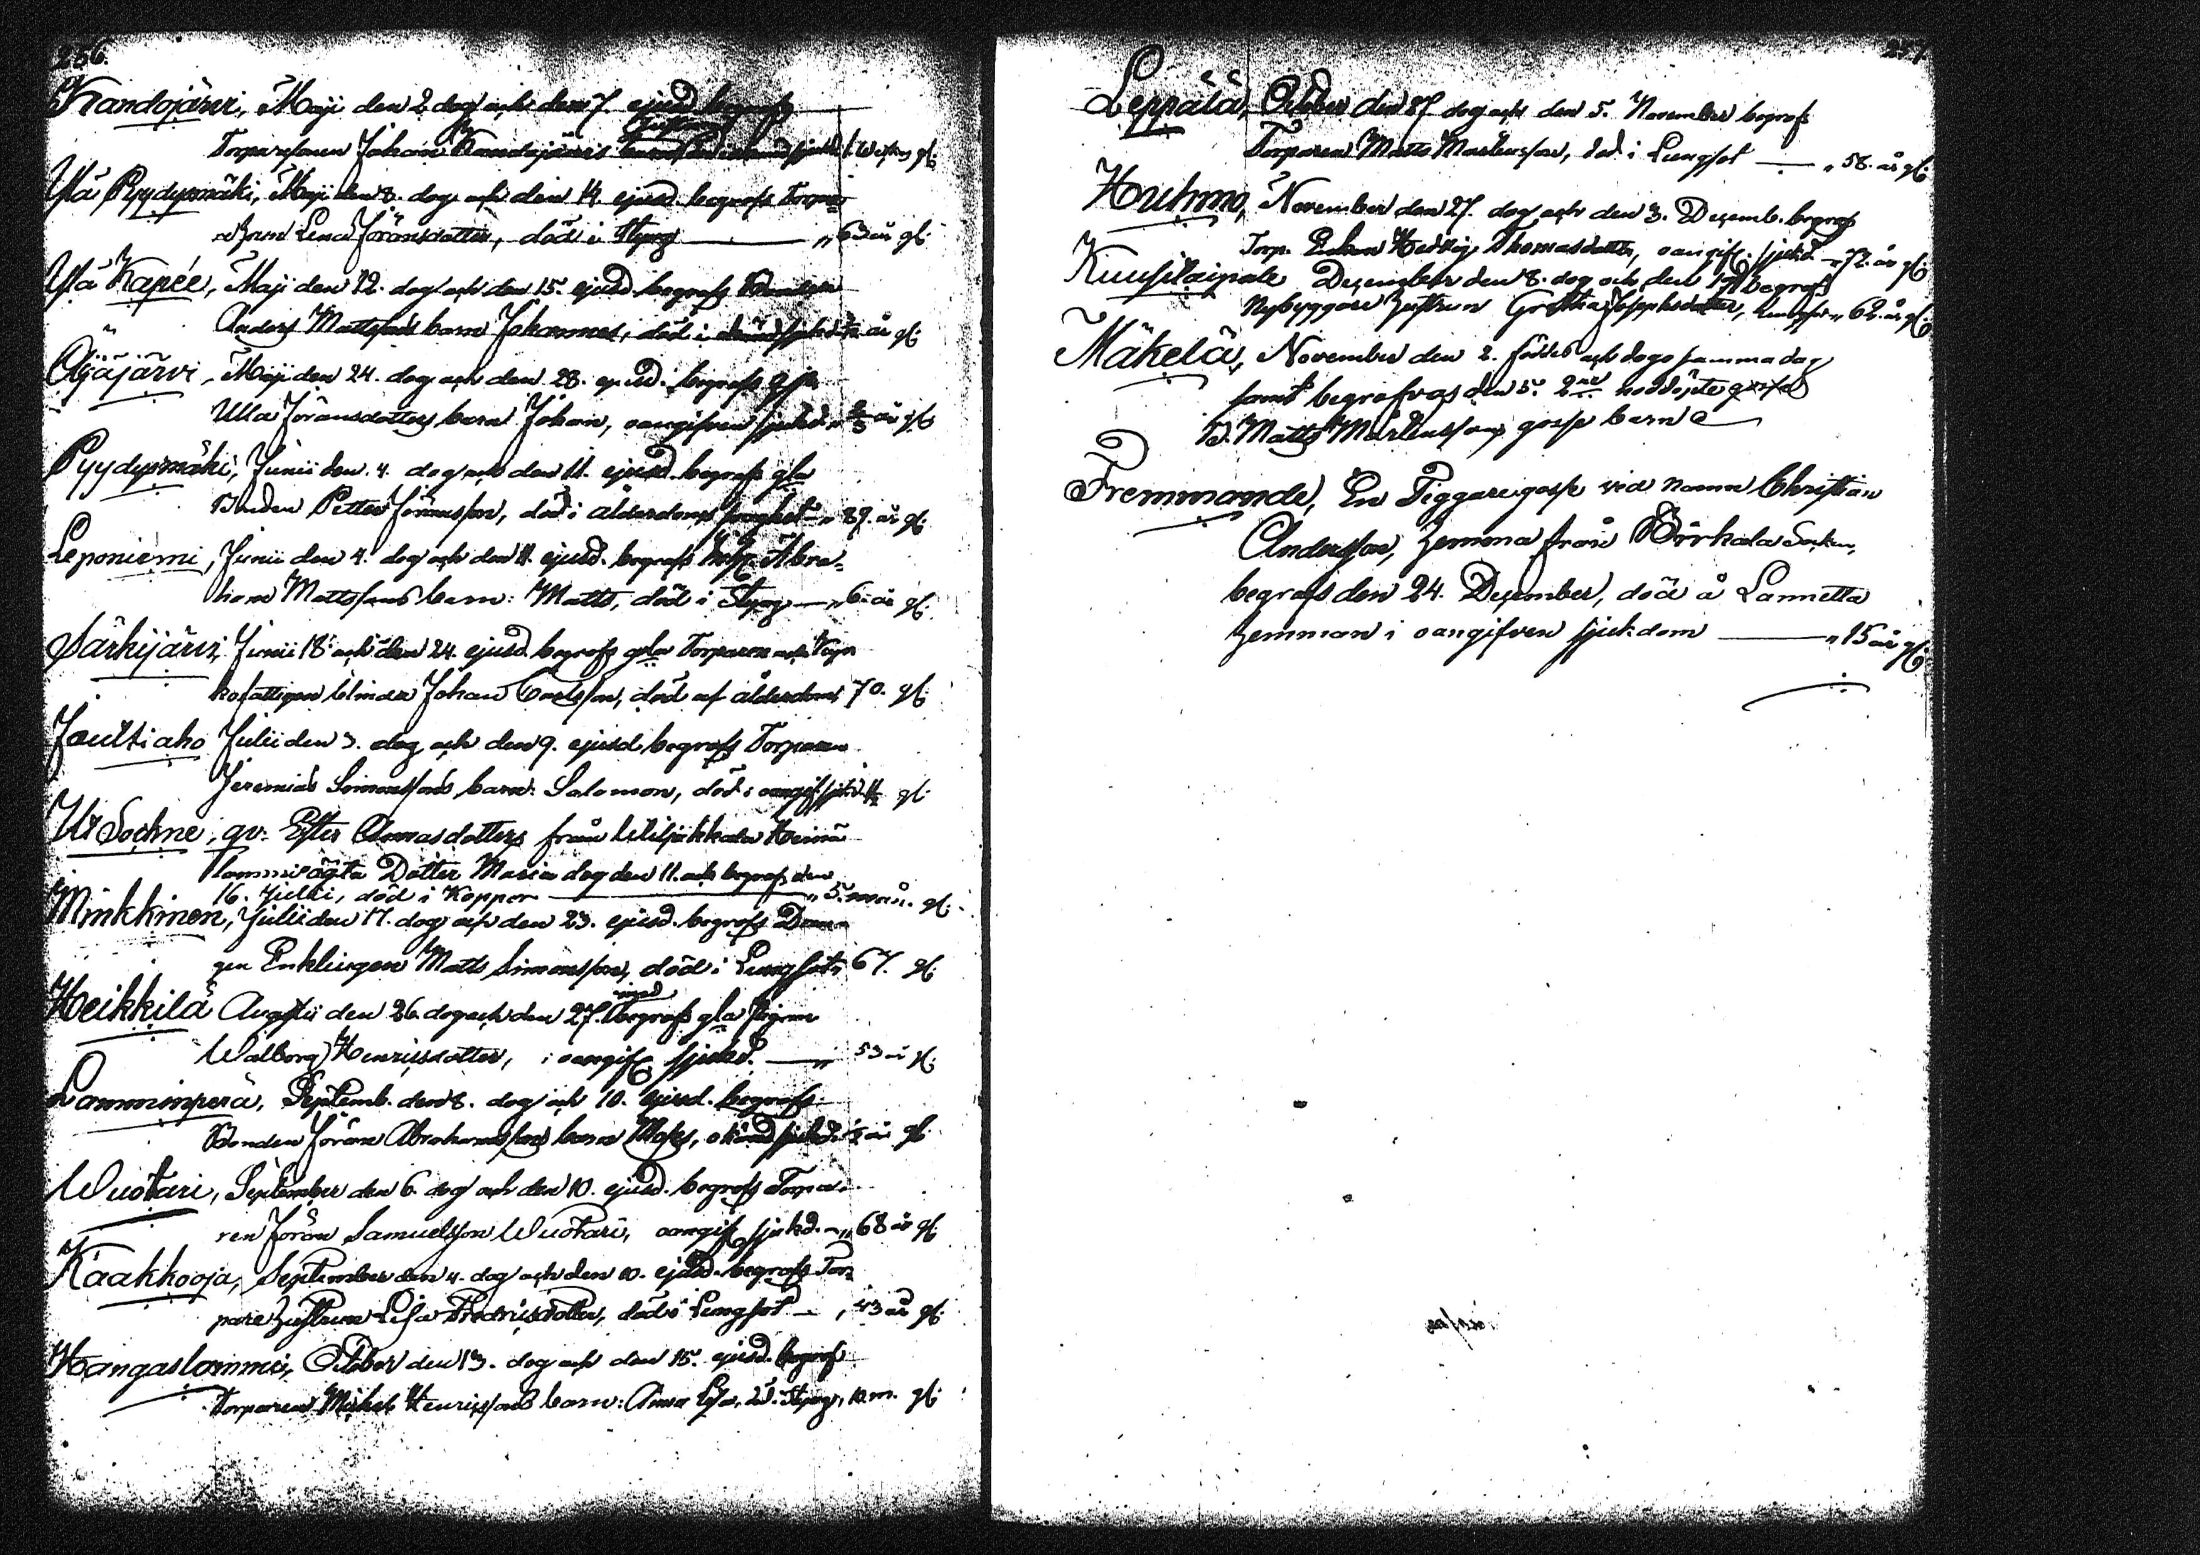 256.
Kandojärvi, Maji den 2 dog och den 7. ejusd. begrofs
Torparesonen Johan Kandojärvis
Ylä Pyydysmäki, Maji den 8. dog och den 14 ejusd. begrofs Torpar
Lena Jöransdotter, död i Styng 63 år gl:
Ylä Kapée, Maji den 12. dog och den 15. ejusd. begrofs
Anders Mattssons barn Johannes, död i år gl:
Äijäjärvi, Maji den 24. dog och den 28. ejusd. begrofs
Ulla Jöransdotters barn Johan, oangifven sjukd. år gl:
Pyydysmäki, Junii den 4. dog och den 11. ejusd. begrofs gla
Bonden Petter Jöransson, död i ålderdoms 89. år gl:
Leponiemi, Junii den 4. dog och den 11. ejusd. begrofs Abra=
ham Mattssons barn: Matts, död i Styng 6. år gl:
Särkijärvi, Junii 18 och den 24. ejusd. begrofs gla Torparen och
kofattigen blinda Johan Carlsson, död af ålderdom 70. gl:
Jaultiaho Julii den 3. dog och den 9. ejusd. begrofs Torparen
Jeremias Simonssons barn: Salomon, död i oangif. sjukd. gl:
Ur Sochne, qv: Ester Annasdotters från Wiljakkala Heinä
lammi oägta Dotter Maria dog den 11. och begrofs den
16. Julii, död i Koppor 5. mån. gl:
Minkkinen, Julii den 17. dog och den 23. ejusd. begrofs
gen Enklingen Matts Simonsson, död i Lungsot 67. gl:
Heikkilä Augustii den 26. dog och den 27. ejusd. begrofs gla Pigan
Walborg Henricsdotter, i oangif. sjukd. 53 år gl:
Lamminperä, Septemb. den 8. dog och 10. ejusd. begrofs
Bonden Jöran Abrahamssons barn Moses, okänd sjukd. år gl:
Wuotari, September den 6. dog och den 10. ejusd. begrofs Torpa-
ren Jöran Samuelsson Wuotari, oangif. sjukd. 68 år gl:
Kaakkooja, September den 4. dog och den 10. ejusd. begrofs Tor=
pare Hustrun Lisa Fredricsdotter, död i Lungsot 43 år gl:
Hangaslammi, October den 13. dog och den 15. ejusd. begrofs
Torparen Michel Henricssons barn: Anna Lisa, d. i Styng, 10. m. gl:
257
Leppälä, October den 27. dog och den 5. November begrofs
Torparen Matts Mårtensson, död i Lungsot 58. år gl:
Huhmo, November den 27. dog och den 3. Decemb. begrofs
Torp. Enkan Hedvig Thomasdotter, oangif. sjukd. 72. år gl:
December den 8. dog och den begrofs
Nybyggare Hustrun Gretha Josephsdotter, Lungsot 62. år gl:
Mäkelä, November den 2. föddes och dogo samma dag
samt begrofvos den 5. 2ne nöddöpte
B. Matts Mårtenssons gosse barn
Fremmande, En Tiggaregosse vid namn Christian
Andersson, hemma från Birkala Socken,
begrofs den 24. December, död å Lannetta
hemman i oangifven sjukdom 15 år gl: